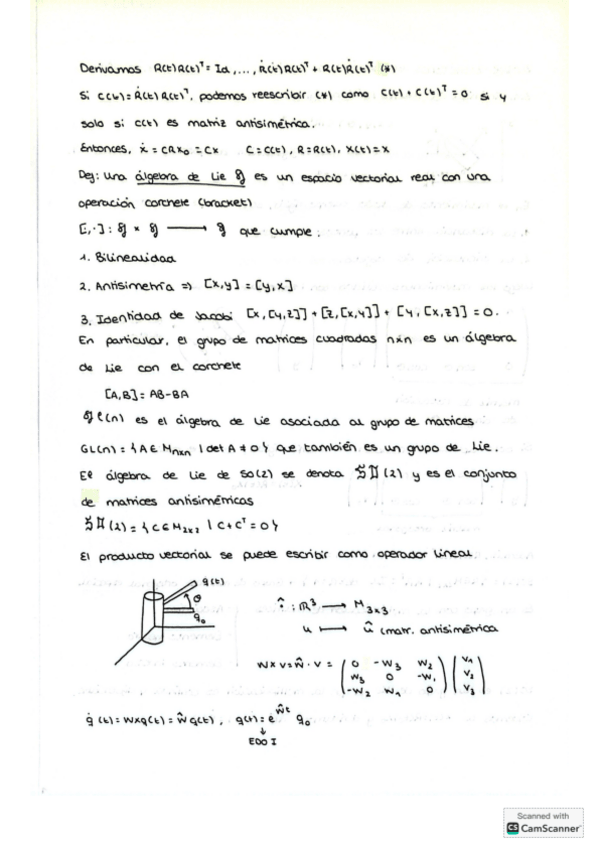 Derivamos R(t)R(t)ᵀ = Id, ..., Ṙ(t)R(t)ᵀ + R(t)Ṙ(t)ᵀ (*)
Si C(t) = Ṙ(t)R(t)ᵀ, podemos reescribir (*) como C(t) + C(t)ᵀ = 0 si y
solo si C(t) es matriz antisimétrica.
Entonces, ẋ = CRx₀ = Cx C = C(t), R = R(t), X(t) = x
Def: Una álgebra de Lie 𝔤 es un espacio vectorial real con una
operación corchete (bracket)
[·,·]: 𝔤 × 𝔤 ⟶ 𝔤 que cumple:
1. Bilinealidad
2. Antisimetría => [x,y] = [y,x]
3. Identidad de Jacobi [x,[y,z]] + [z,[x,y]] + [y,[x,z]] = 0.
En particular, el grupo de matrices cuadradas n×n es un álgebra
de Lie con el corchete
[A,B] = AB-BA
𝔤ℓ(n) es el álgebra de Lie asociada al grupo de matrices
GL(n) = {A ∈ Mn×n | det A ≠ 0} que también es un grupo de Lie.
El álgebra de Lie de SO(2) se denota 𝔰𝔬(2) y es el conjunto
de matrices antisimétricas
𝔰𝔬(2) = {C ∈ M2×2 | C + Cᵀ = 0}
El producto vectorial se puede escribir como operador lineal
q(t)
θ
q₀
^ : ℝ³ ⟶ M3×3
u ⟼ û (matr. antisimétrica
w × v = ŵ · v = ( 0 -w₃ w₂ ) ( v₁ )
( w₃ 0 -w₁ ) ( v₂ )
( -w₂ w₁ 0 ) ( v₃ )
q̇(t) = w×q(t) = ŵ q(t), q(t) = e^ŵt q₀
↓
EDO I
Scanned with
CS CamScanner